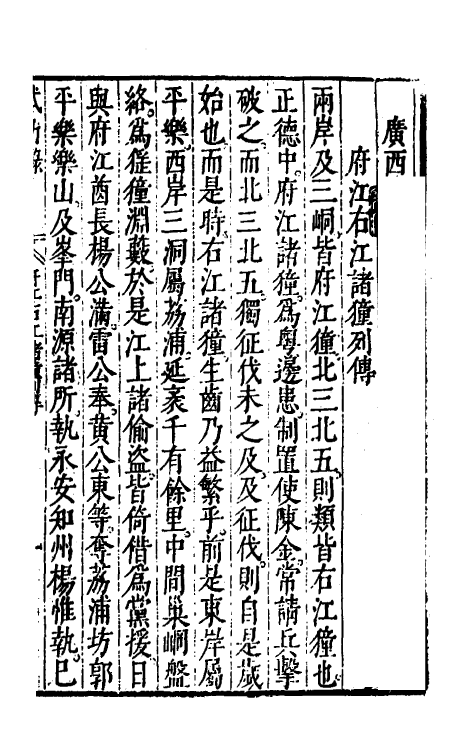 廣西
府江右江諸獞列傳
兩岸及三峒皆府江獞北三北五則類皆右江獞也
正德中府江諸獞為粵邊患制置使陳金常請兵擊
破之而北三北五獨征伐未之及及征伐則自是歲
始也而是時右江諸獞生齒乃益繁乎前是東岸屬
平樂西岸三洞屬荔浦延袤千有餘里中間巢峒盤
絡為猺獞淵藪於是江上諸偷盜皆倚借為黨援日
與府江酋長楊公滿雷公奉黄公東等奪荔浦坊郭
平樂樂山及峯門南源諸所執永安知州楊惟執巳
武功錄